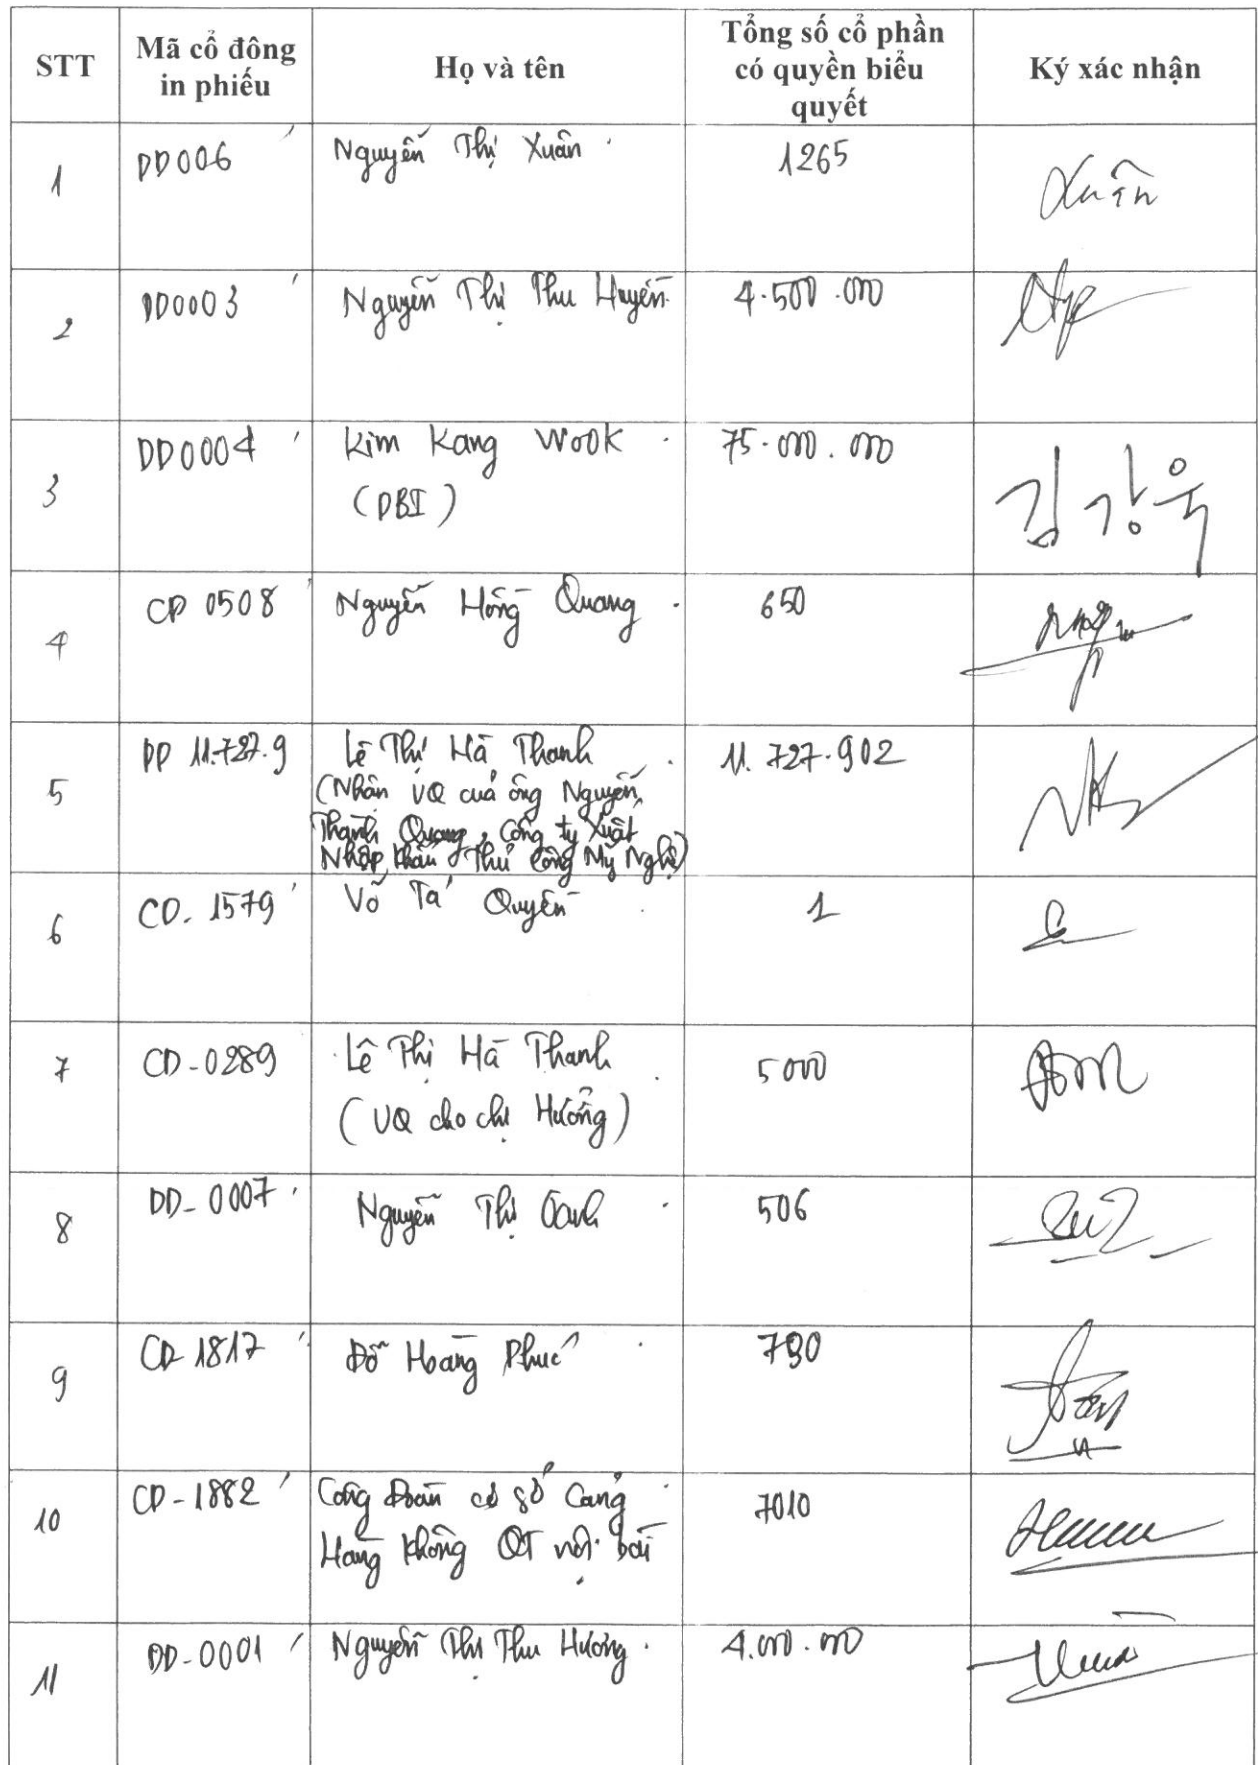 STT
Mã cổ đông
in phiếu
Họ và tên
Tổng số cổ phần
có quyền biểu
quyết
Ký xác nhận
1 DD006 Nguyễn Thị Xuân 1265 Xuân
2 DD0003 Nguyễn Thị Thu Huyền 4.500.000
3 DD0004 Kim Kang Wook 75.000.000 김강욱
(DBI)
4 CD 0508 Nguyễn Hồng Quang 650
5 DD 11.727.9 Lê Thị Hà Thanh 11.727.902
(Nhận UQ của ông Nguyễn
Thanh Quang, Công ty Xuất
Nhập khẩu Thủ Công Mỹ Nghệ)
6 CD. 1579 Võ Tá Quyền 1
7 CD-0289 Lê Thị Hà Thanh 5000
(UQ cho chị Hường)
8 DD-0007 Nguyễn Thị Oanh 506
9 CD-1817 Đỗ Hoàng Phúc
10 CD-1882 Công Đoàn cơ sở Cảng 7010
Hàng không QT nội bài
11 DD-0001 Nguyễn Thị Thu Hương 4.000.000